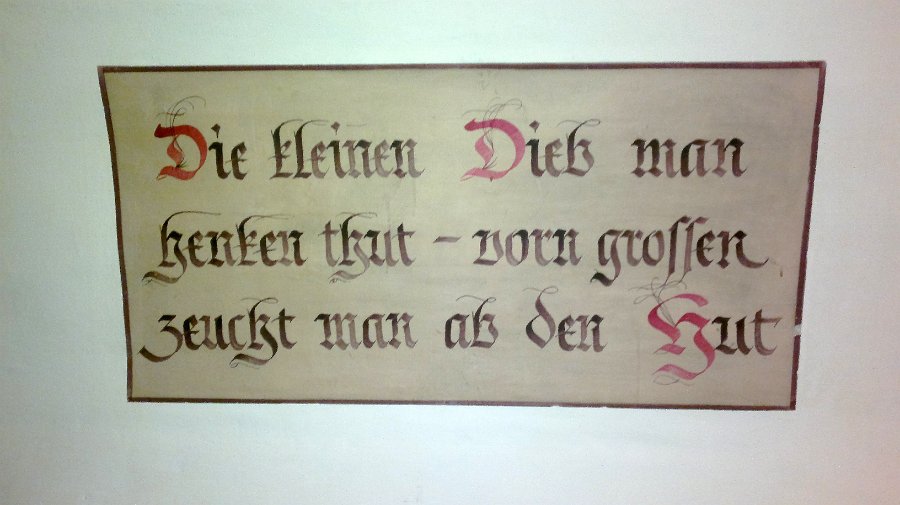 Die kleinen Dieb man
henken thut – vorn grossen
zeucht man ab den Hut